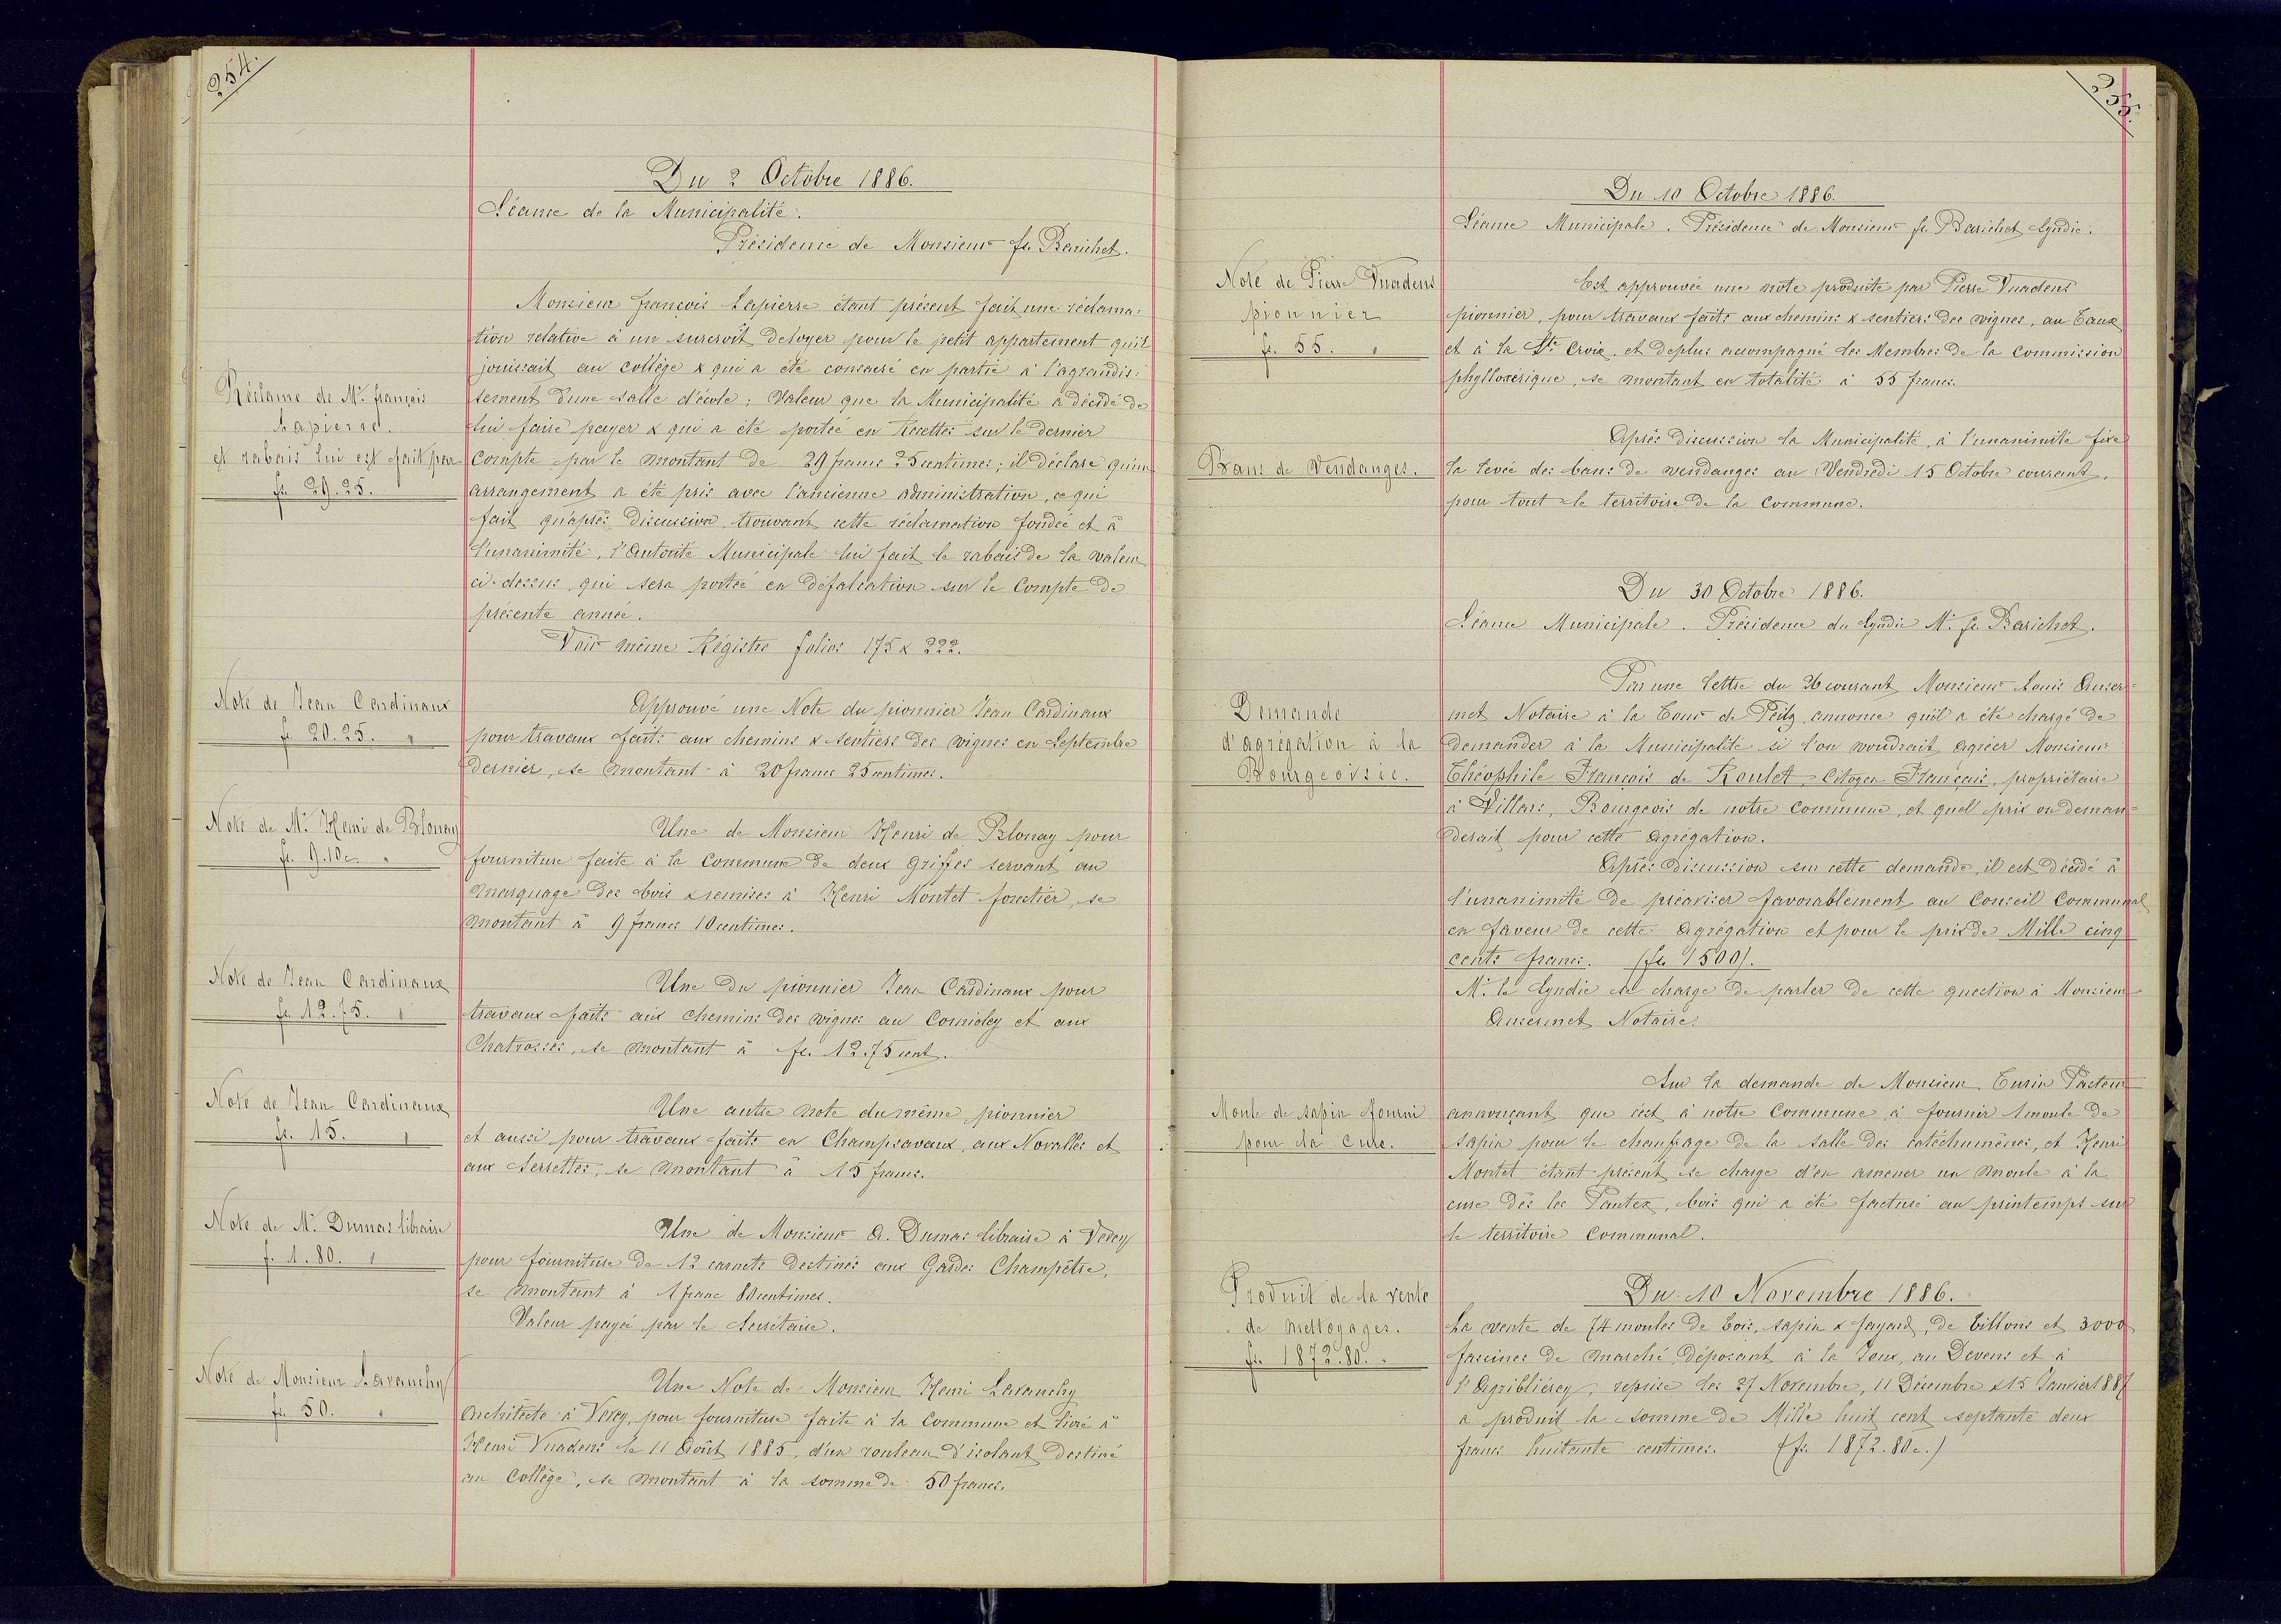 254.
Du 2 Octobre 1886.
Séance de la Municipalité.
Présidence de Monsieur fs. Barichet.
Réclame de Mr. françois
Lapierre.
et rabais lui est fait par
fr. 29.25.
Monsieur françois Lapierre étant présent fait une réclama-
tion relative à un surcroît de loyer pour le petit appartement qu'il
jouissait au collège & qui a été consacré en partie à l'agrandis-
sement d'une salle d'école; valeur que la Municipalité a décidé de
lui faire payer & qui a été portée en Recettes sur le dernier
Compte par le montant de 29 francs 25 centimes; il déclare qu'un
arrangement a été pris avec l'ancienne administration, ce qui
fait qu'après discussion, trouvant cette réclamation fondée et à
l'unanimité, l'Autorité Municipale lui fait le rabais de la valeur
ci-dessus, qui sera portée en défalcation sur le Compte de
présente année.
Voir même Régistre folios 175 & 222.
Note de Jean Cardinaux
fr. 20.25. "
Approuvé une Note du pionnier Jean Cardinaux
pour travaux faits aux chemins & sentiers des vignes en Septembre
dernier, se montant à 20 francs 25 centimes.
Note de Mr. Henri de Blonay
fr. 9.10c. "
Une de Monsieur Henri de Blonay pour
fourniture faite à la Commune de deux griffes servant au
marquage des bois & remises à Henri Montet forestier, se
montant à 9 francs 10 centimes.
Note de Jean Cardinaux
fr. 12.75. "
Une du pionnier Jean Cardinaux pour
travaux faits aux chemins des vignes au Comioley et aux
Chatrosses, se montant à fr. 12.75 cent.
Note de Jean Cardinaux
fr. 15. "
Une autre note du même pionnier
et aussi pour travaux faits en Champsavaux, aux Novalles et
aux Serrettes, se montant à 15 francs.
Note de Mr. Dumas libraire
f. 1.80. "
Une de Monsieur A. Dumas libraire à Vevey
pour fourniture de 12 carnets destinés aux Gardes Champêtre,
se montant à 1 franc 80 centimes.
Valeur payée par le Secrétaire.
Note de Monsieur Lavanchy
fr. 50. "
Une Note de Monsieur Henri Lavanchy
Architecte à Vevey, pour fourniture faite à la Commune et livré à
Henri Vuadens le 11 Août 1885, d'un rouleau d'isolant destiné
au Collège, se montant à la somme de 50 francs.
255.
Du 10 Octobre 1886.
Séance Municipale. Présidence de Monsieur fs. Barichet Syndic.
Note de Pierre Vuadens
pionnier
fr. 55. "
Est approuvée une note produite par Pierre Vuadens
pionnier, pour travaux faits aux chemins & sentiers des vignes, au Taux
et à la Ste. Croix, et deplus accompagné les Membres de la Commission
phylloxérique, se montant en totalité à 55 francs.
Bans de Vendanges.
Après discussion la Municipalité, à l'unanimité fixe
la levée des bans de vendanges au Vendredi 15 Octobre courant,
pour tout le territoire de la Commune.
Du 30 Octobre 1886.
Séance Municipale. Présidence du Syndic Mr. fs. Barichet.
Demande
d'agrégation à la
Bourgeoisie.
Par une lettre du 26 courant Monsieur Louis Anser-
met Notaire à la Tour de Peilz, annonce qu'il a été chargé de
demander à la Municipalité si l'on voudrait agréer Monsieur
Théophile François de Roulet, Citoyen Français, propriétaire
à Villars, Bourgeois de notre Commune, et quel prix on deman-
derait pour cette Agrégation.
Après discussion sur cette demande, il est décidé à
l'unanimité de préaviser favorablement au Conseil Communal
en faveur de cette Agrégation et pour le prix de Mille cinq
cents francs. (fr. 1500).
Mr. le Syndic se charge de parler de cette question à Monsieur
Ansermet Notaire.
Moule de sapin fourni
pour la cure.
Sur la demande de Monsieur Turin Pasteur
annonçant que c'est à notre Commune à fournir 1 moule de
sapin pour le chauffage de la salle des catéchumènes, et Henri
Montet étant présent se charge d'en amener un moule à la
cure dès les Pautex, bois qui a été facturé au printemps sur
le territoire Communal.
Du 10 Novembre 1886.
Produit de la vente
de nettoyages.
fr. 1872.80. "
La vente de 74 moules de bois, sapin & fayard, de billons et 3000
fascines de marché, déposant à la Joux, au Devens et à
l'Agribliérey, reprise les 27 Novembre, 11 Décembre & 15 Janvier 1887
a produit la somme de Mille huit cent septante deux
francs huitante centimes. (fr. 1872.80c.)